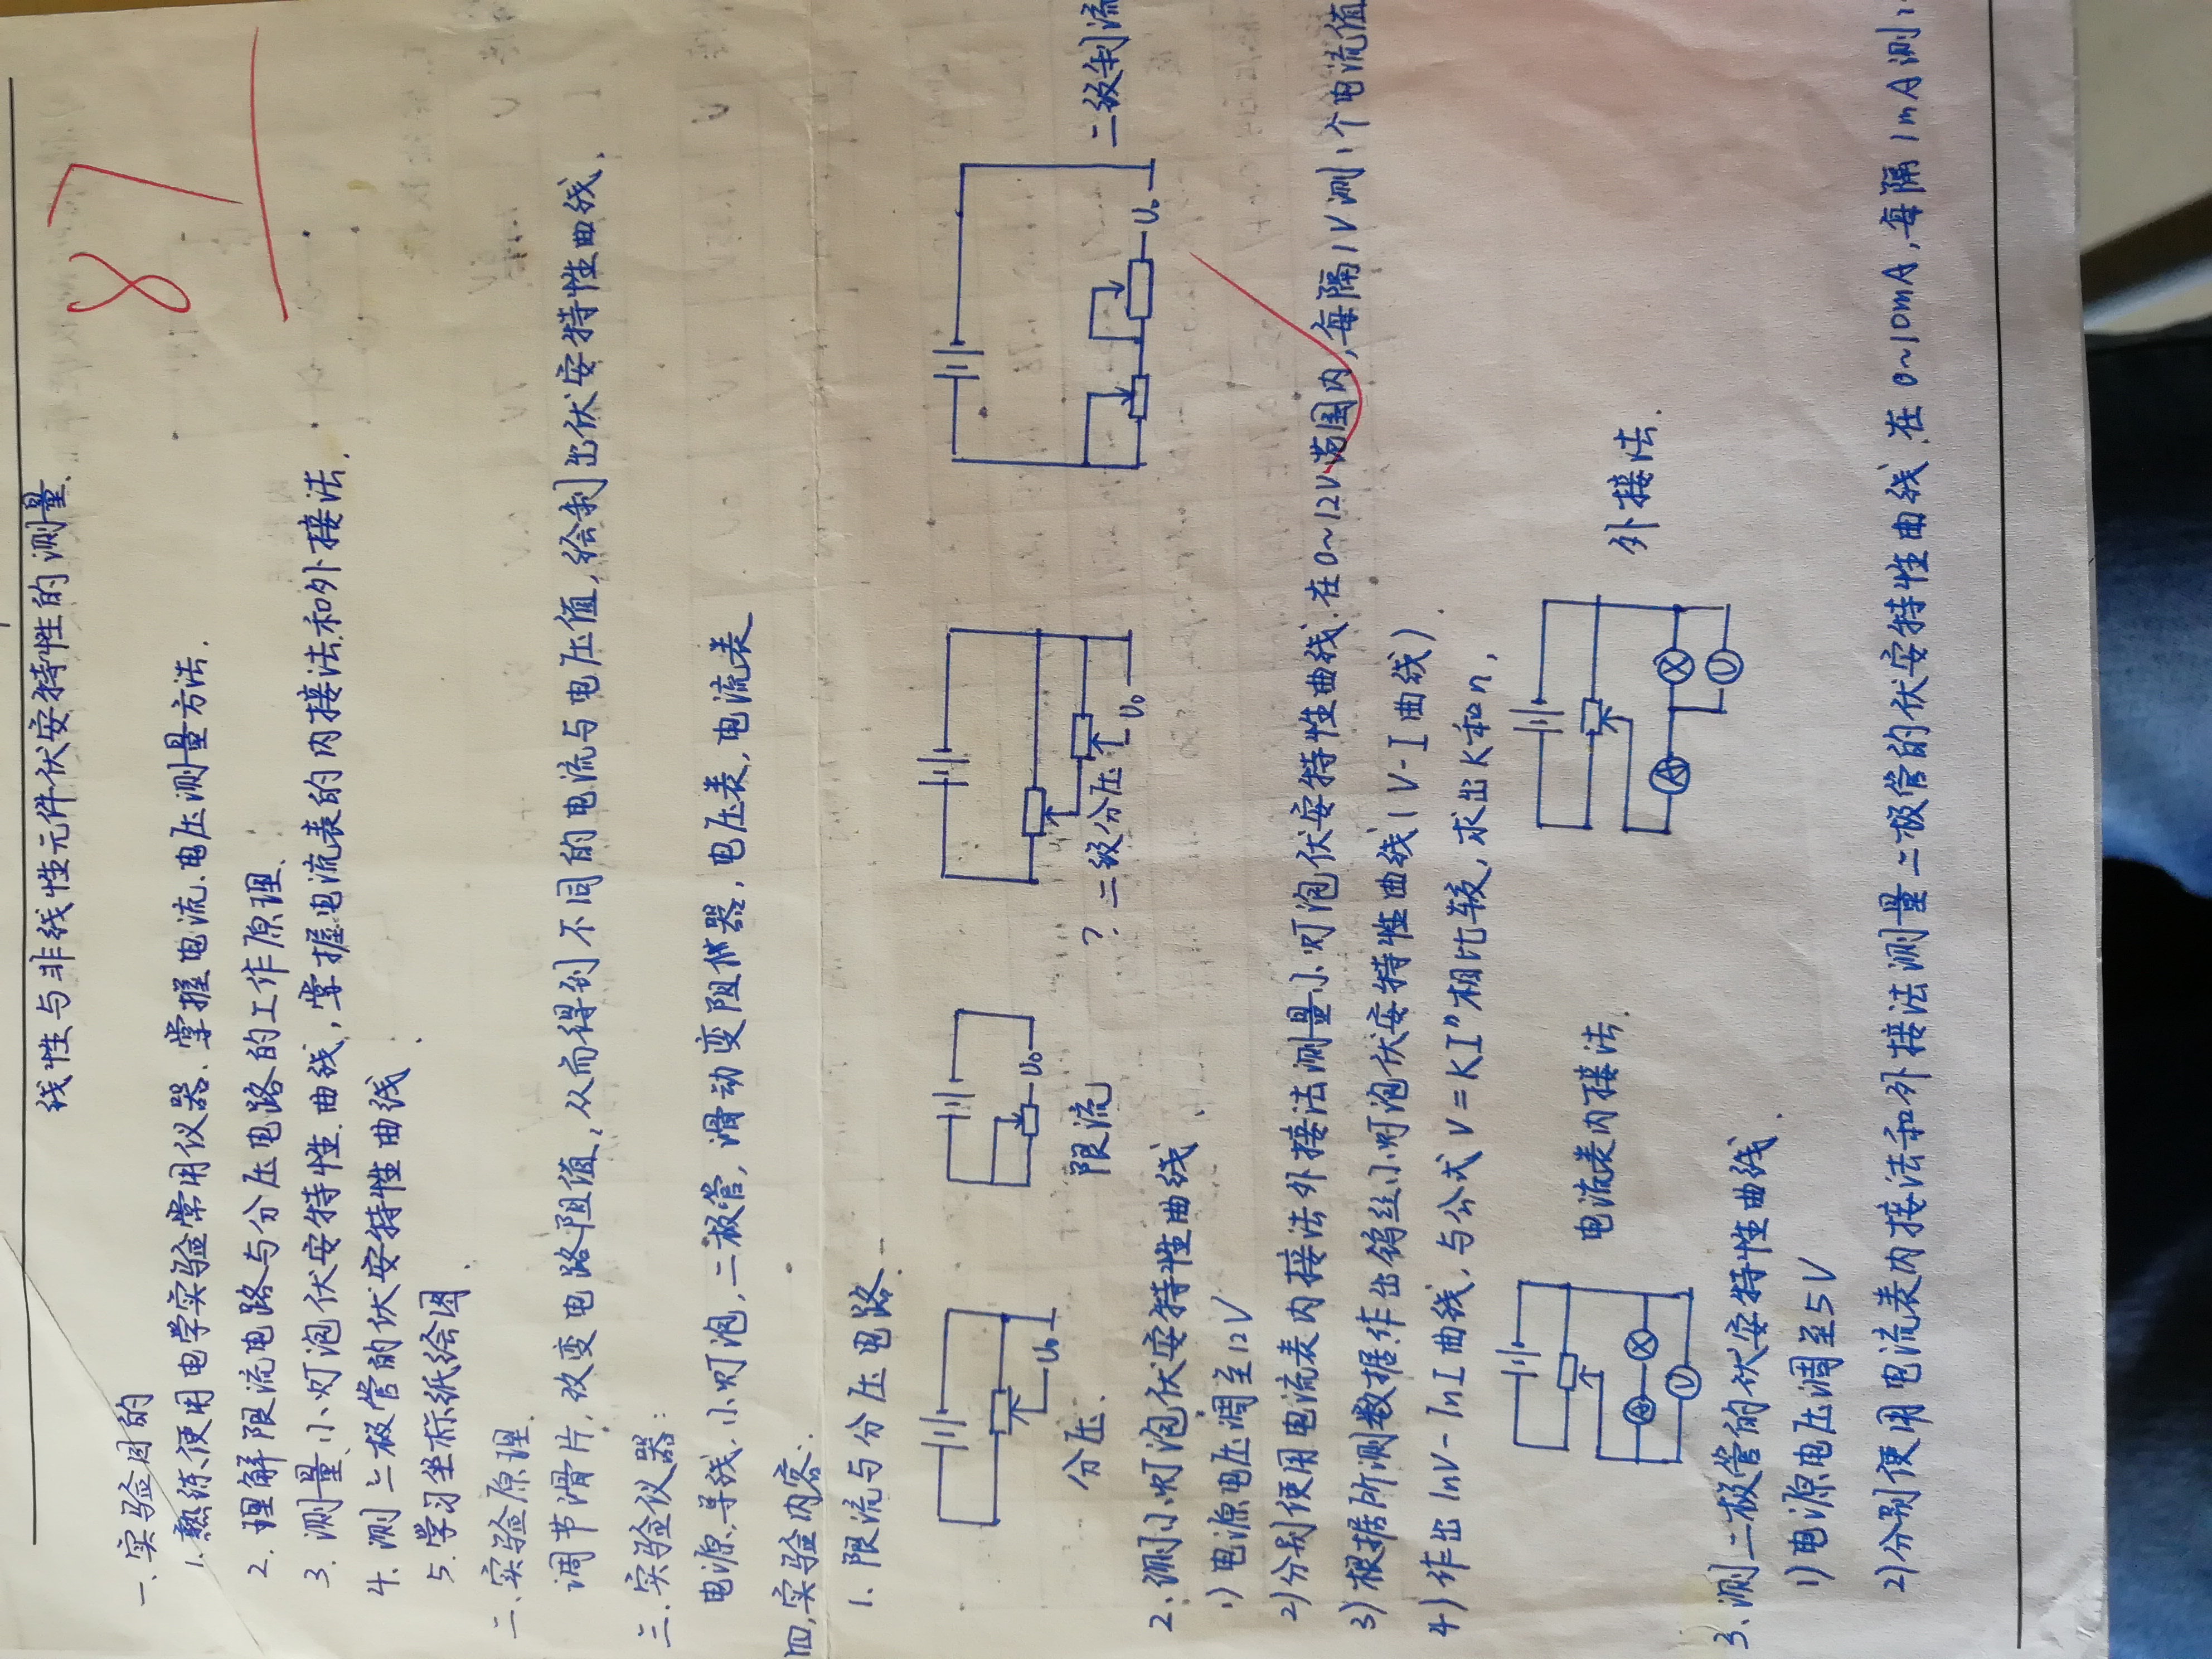 线性与非线性元件伏安特性的测量.
87
一.实验目的
1.熟练使用电学实验常用仪器.掌握电流.电压测量方法.
2.理解限流电路与分压电路的工作原理.
3.测量小灯泡伏安特性曲线,掌握电流表的内接法和外接法.
4.测二极管的伏安特性曲线.
5.学习坐标纸绘图.
二.实验原理.
调节滑片,改变电路阻值,从而得到不同的电流与电压值,绘制出伏安特性曲线.
三.实验仪器:
电源.导线.小灯泡,二极管,滑动变阻器,电压表,电流表
四.实验内容:
1.限流与分压电路.
U₀ U₀ U₀ U₀
分压. 限流 ?二级分压 二级制流
2.测小灯泡伏安特性曲线.
1)电源电压调至12V
2)分别使用电流表内接法外接法测量小灯泡伏安特性曲线.在0~12V范围内,每隔1V测1个电流值
3)根据所测数据作出钨丝小灯泡伏安特性曲线(V-I曲线).
4)作出lnV-lnI曲线,与公式V=KIⁿ相比较,求出K和n,
电流表内接法. 外接法.
A X
V
A X
V
3.测二极管的伏安特性曲线.
1)电源电压调至5V
2)分别使用电流表内接法和外接法测量二极管的伏安特性曲线.在0~10mA,每隔1mA测